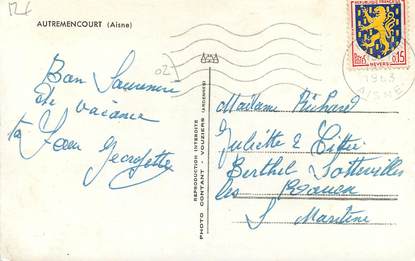 AUTREMENCOURT (Aisne)
Bon Souvenir
de vacance
ta Sœur Georgette
REPRODUCTION INTERDITE
PHOTO CONTANT - VOUZIERS (ARDENNES)
RÉPUBLIQUE FRANÇAISE
POSTES 0,15
NEVERS
1963
AISNE
02
Madame Richard
Juliette
Berthel Sotteville
les Rouen
S Maritime